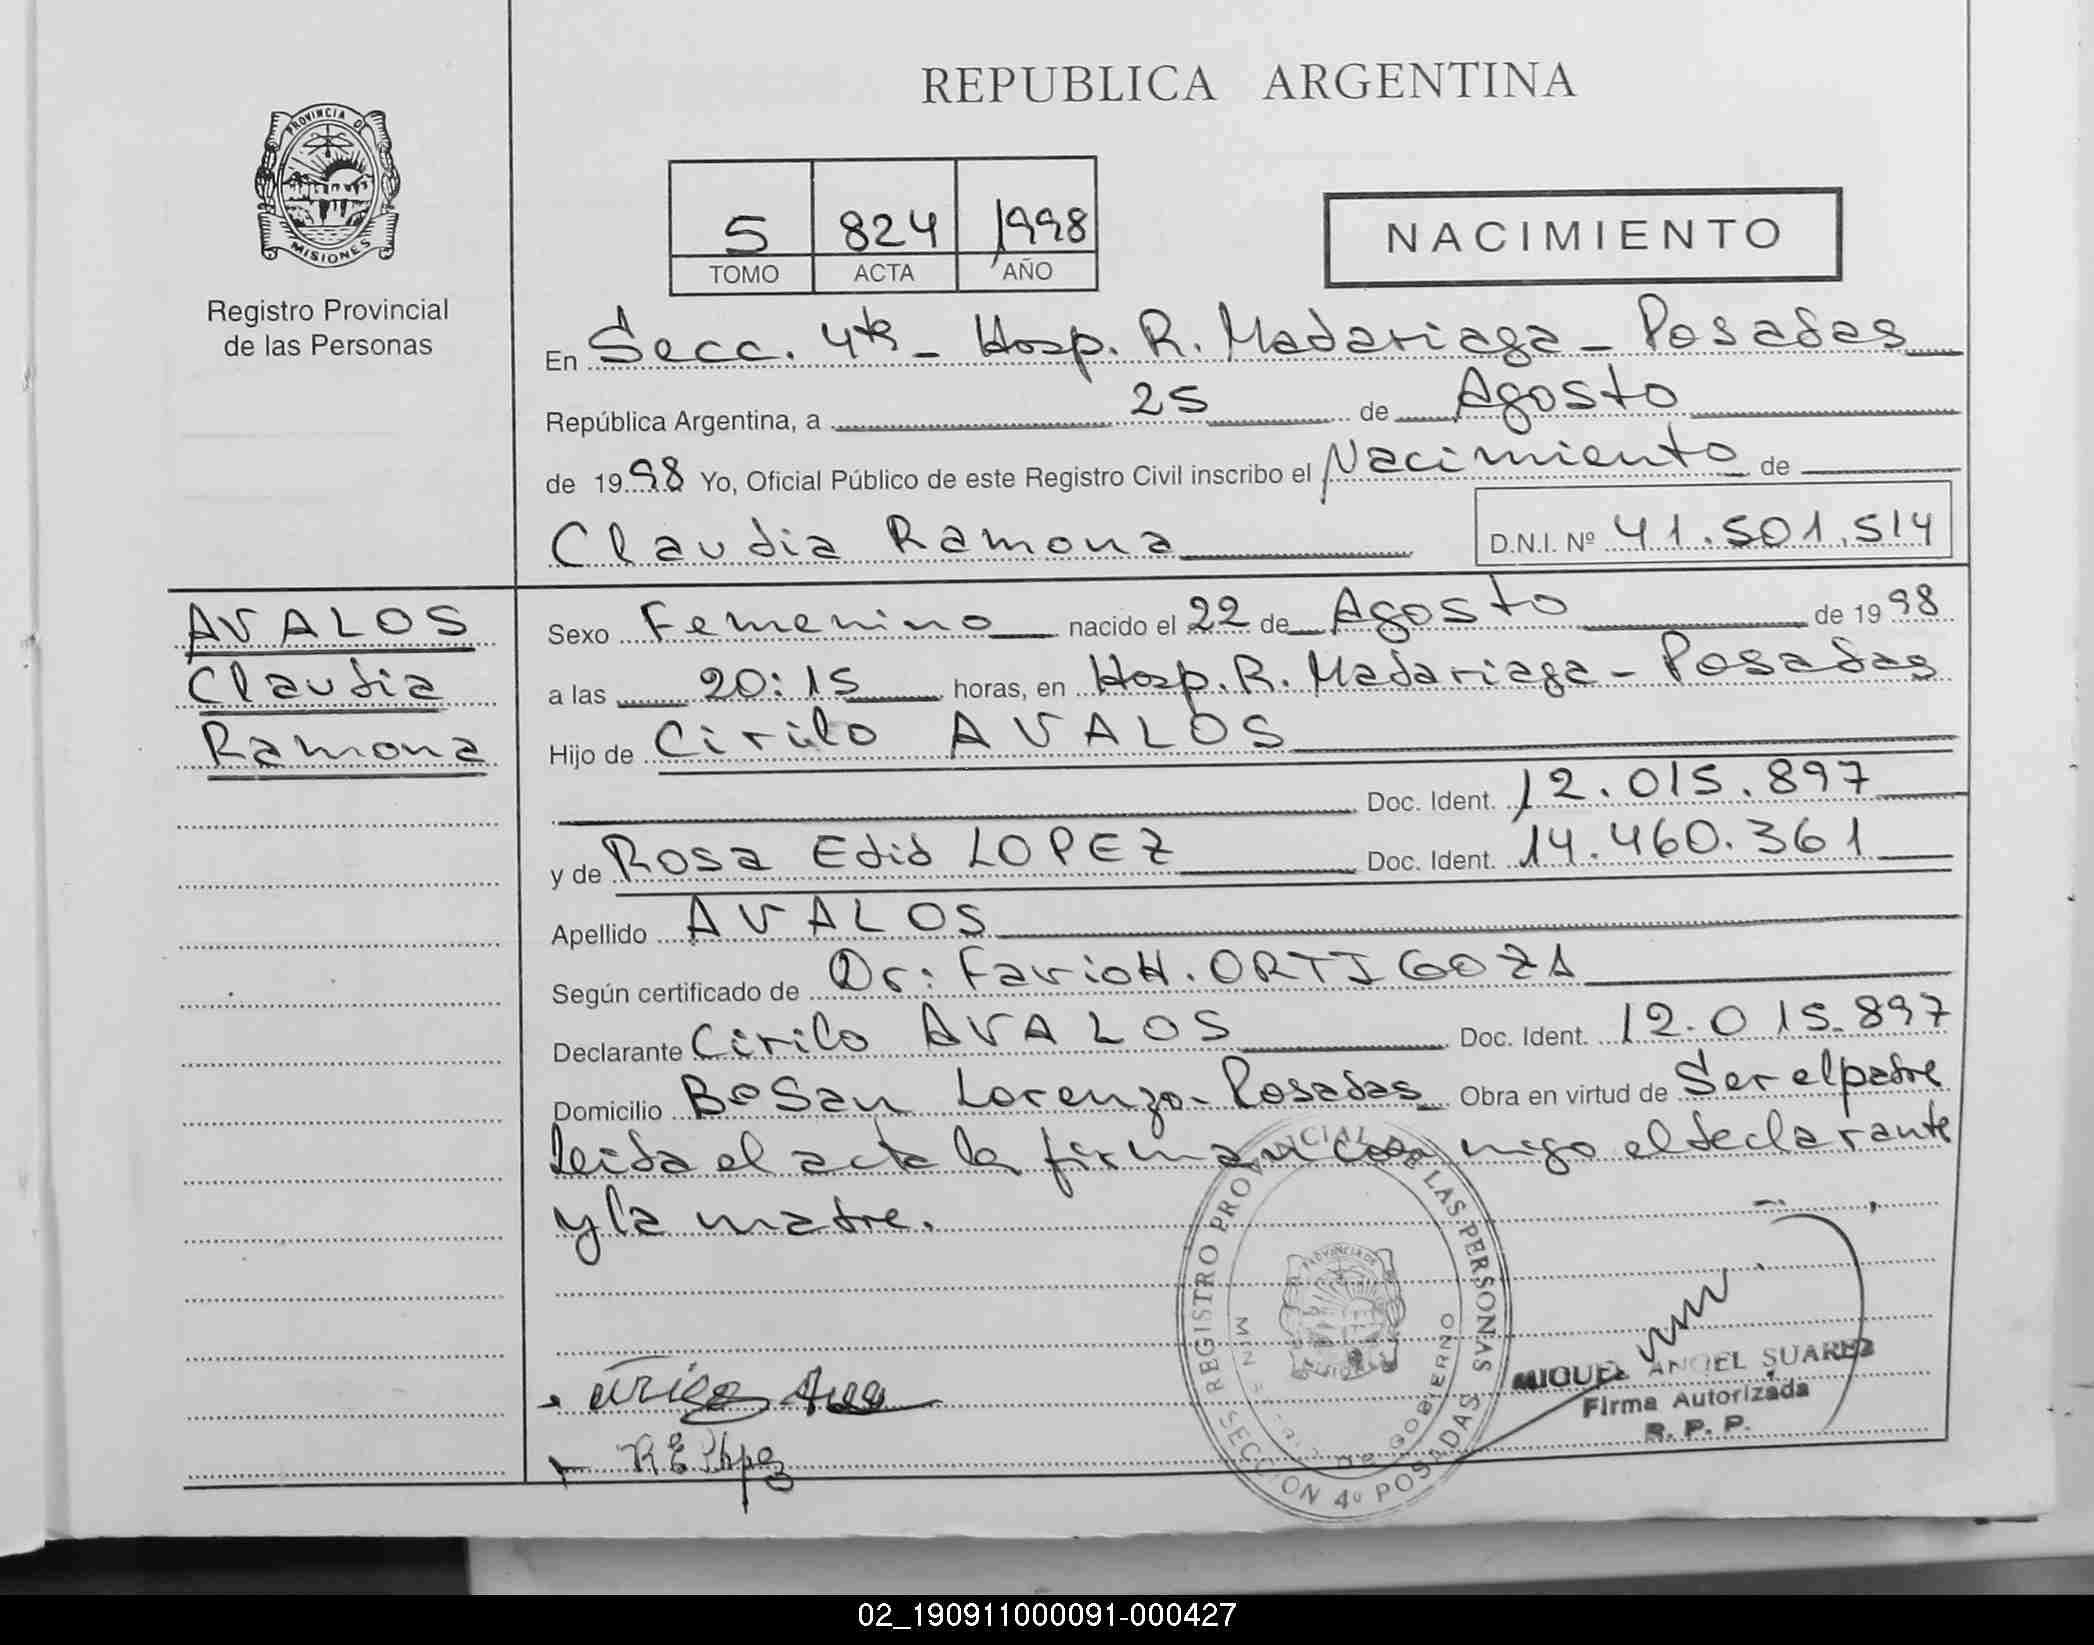 REPUBLICA ARGENTINA
PROVINCIA DE
MISIONES
Registro Provincial
de las Personas
5 824 1998
TOMO ACTA AÑO
NACIMIENTO
En Secc. 4ta - Hosp. R. Madariaga - Posadas
República Argentina, a 25 de Agosto
de 1998 Yo, Oficial Público de este Registro Civil inscribo el Nacimiento de
Claudia Ramona D.N.I. Nº 41.501.514
AVALOS
Claudia
Ramona
Sexo Femenino nacido el 22 de Agosto de 1998
a las 20:15 horas, en Hosp. R. Madariaga - Posadas
Hijo de Cirilo AVALOS
Doc. Ident. 12.015.897
y de Rosa Edid LOPEZ Doc. Ident. 14.460.361
Apellido AVALOS
Según certificado de Dr: Favio H. ORTIGOZA
Declarante Cirilo AVALOS Doc. Ident. 12.015.897
Domicilio Bº San Lorenzo - Posadas Obra en virtud de Ser el padre
leida el acta la firman con migo el declarante
y la madre.
REGISTRO PROVINCIAL DE LAS PERSONAS
SECCION 4º POSADAS
PROVINCIA DE
MISIONES
DE GOBIERNO
R E Lopez
MIGUEL ANGEL SUAREZ
Firma Autorizada
R. P. P.
02_190911000091-000427